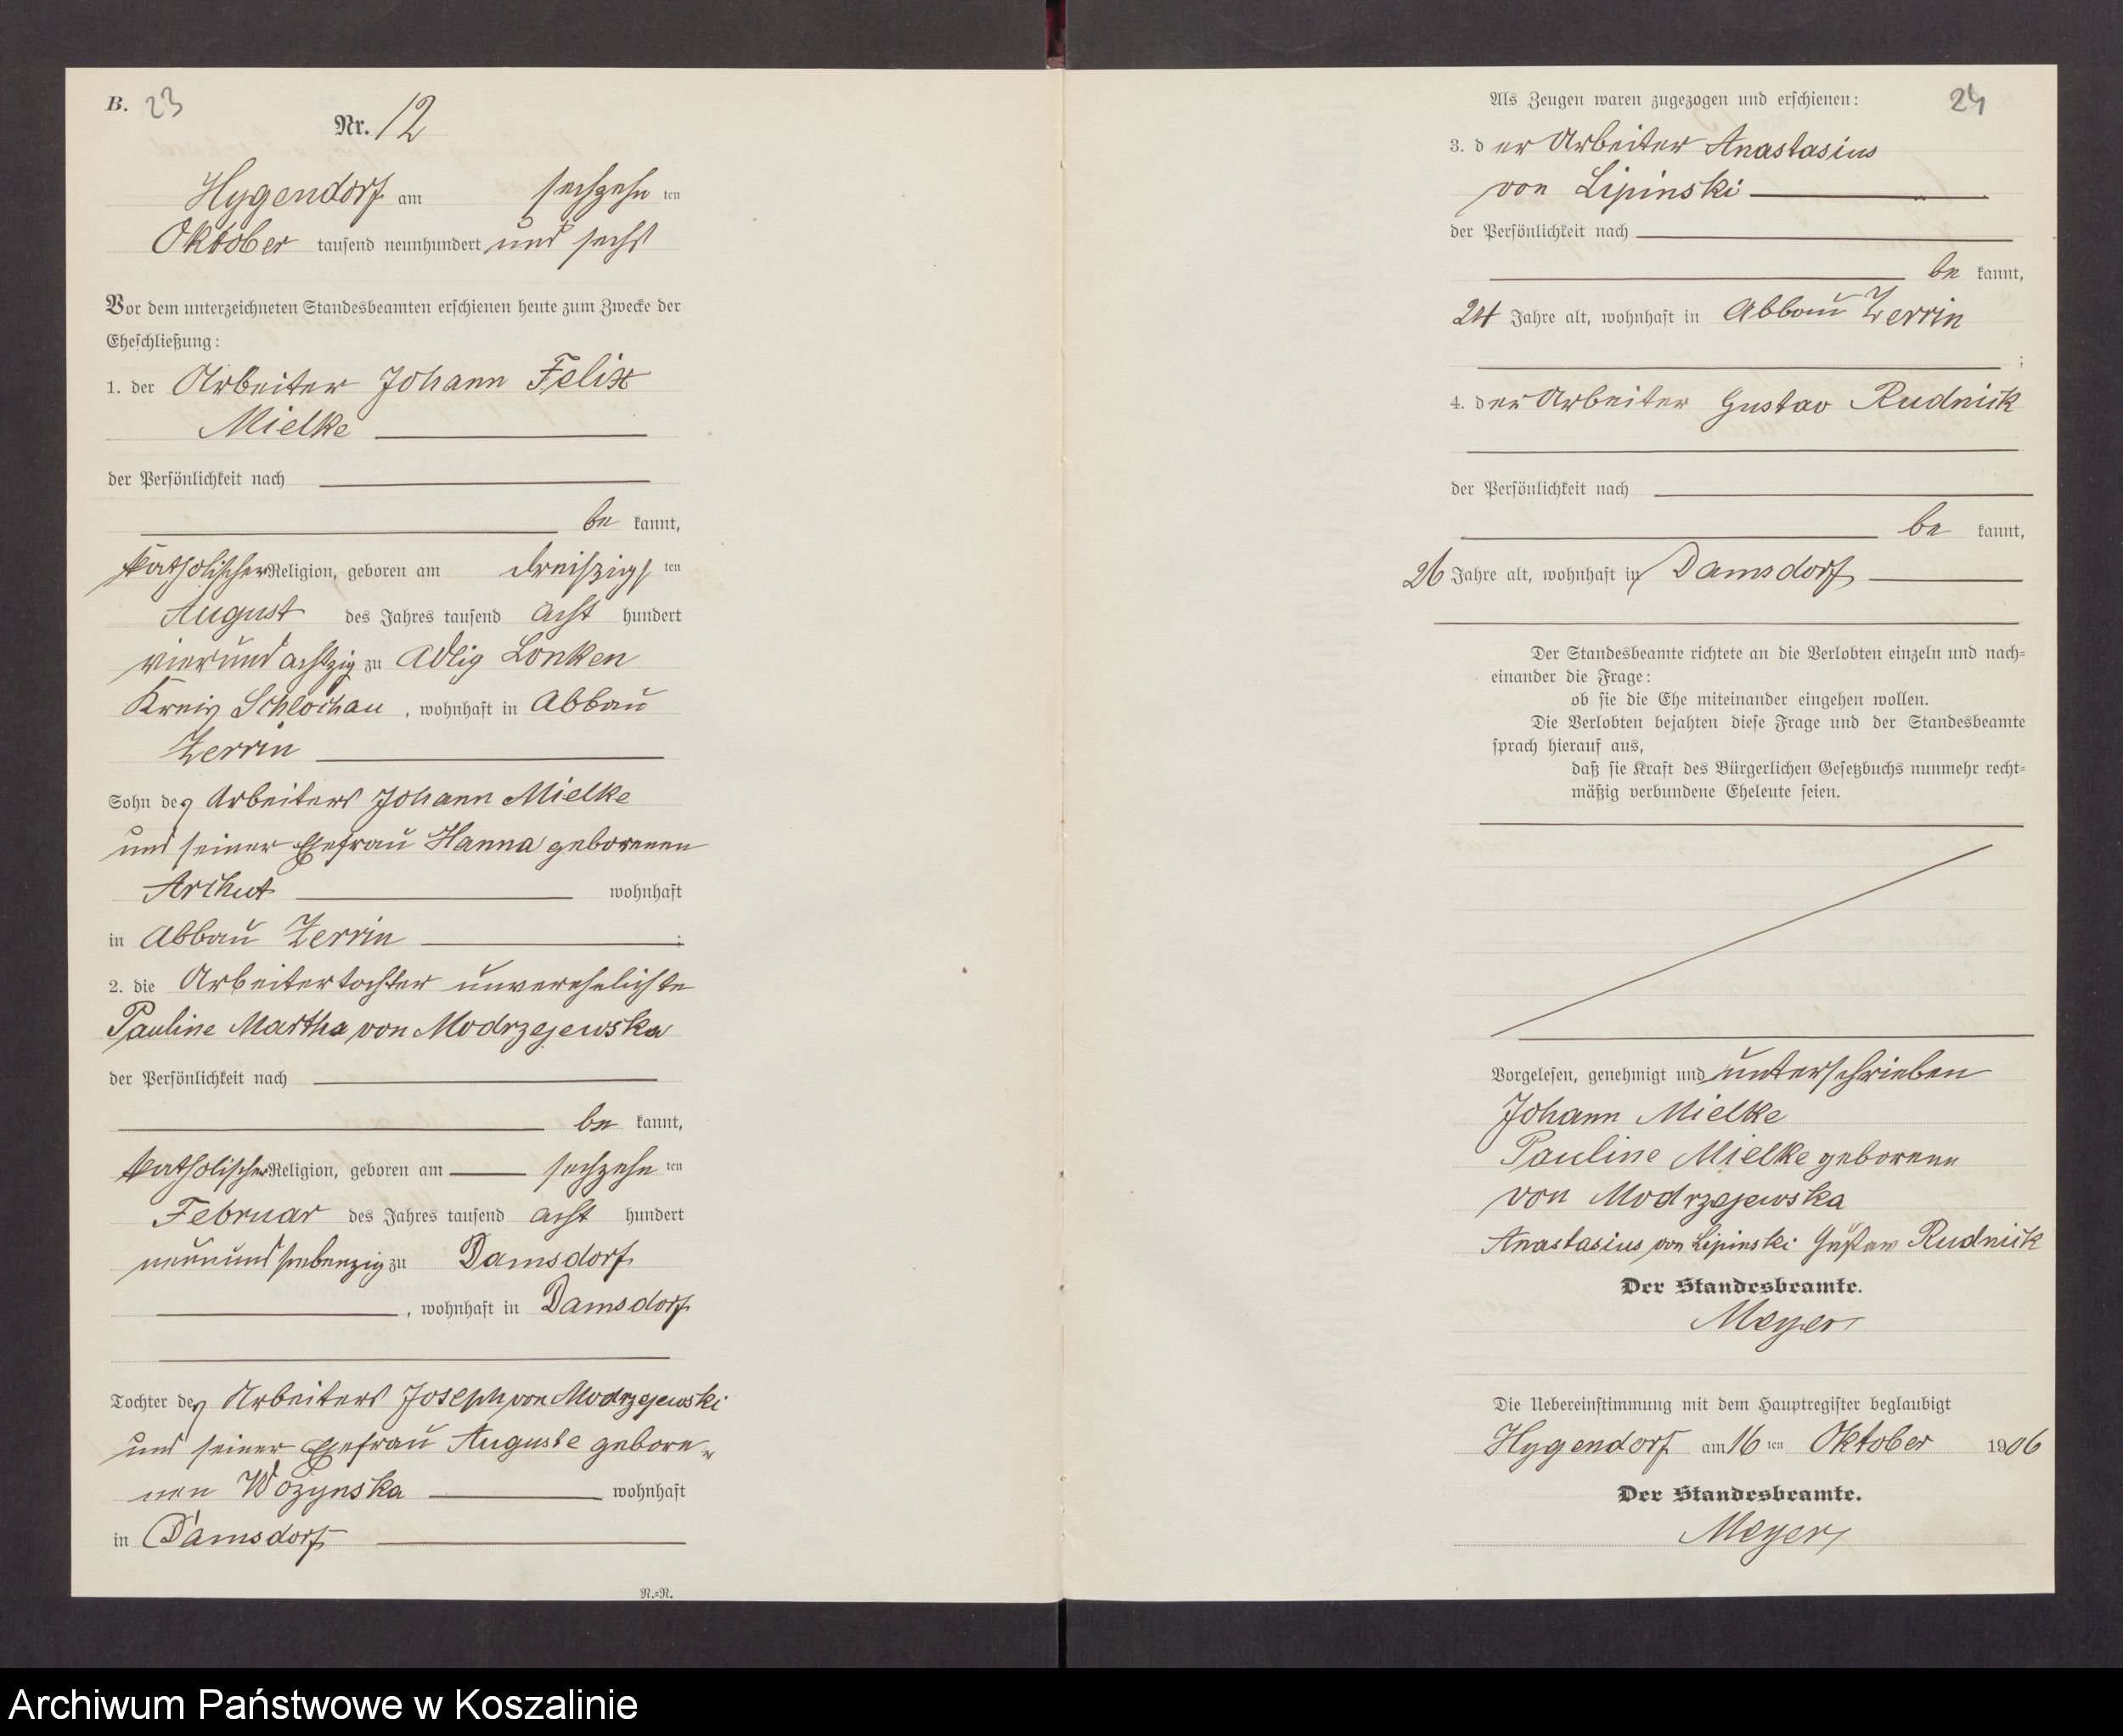 B. 23
Nr. 12
Hygendorf am sechzehn ten
Oktober tausend neunhundert und sechs
Vor dem unterzeichneten Standesbeamten erschienen heute zum Zwecke der
Eheschließung:
1. der Arbeiter Johann Felix
Mielke
der Persönlichkeit nach
be kannt,
katholischer Religion, geboren am dreißigs ten
August des Jahres tausend acht hundert
vierundachtzig zu Adlig Lonken
Kreis Schlochau, wohnhaft in Abbau
Zerrin
Sohn des Arbeiters Johann Mielke
und seiner Ehefrau Hanna geborenen
Archut wohnhaft
in Abbau Zerrin ;
2. die Arbeitertochter unverehelichte
Pauline Martha von Modrzejewska
der Persönlichkeit nach
be kannt,
katholischer Religion, geboren am sechzehn ten
Februar des Jahres tausend acht hundert
neunundsiebenzig zu Damsdorf
, wohnhaft in Damsdorf
Tochter des Arbeiters Joseph von Modrzejewski
und seiner Ehefrau Auguste gebore-
nen Wozynska wohnhaft
in Damsdorf
N.=N.
24
Als Zeugen waren zugezogen und erschienen:
3. der Arbeiter Anastasius
von Lipinski
der Persönlichkeit nach
be kannt,
24 Jahre alt, wohnhaft in Abbau Zerrin
;
4. der Arbeiter Gustav Rudnick
der Persönlichkeit nach
be kannt,
26 Jahre alt, wohnhaft in Damsdorf
Der Standesbeamte richtete an die Verlobten einzeln und nach=
einander die Frage:
ob sie die Ehe miteinander eingehen wollen.
Die Verlobten bejahten diese Frage und der Standesbeamte
sprach hierauf aus,
daß sie Kraft des Bürgerlichen Gesetzbuchs nunmehr recht=
mäßig verbundene Eheleute seien.
Vorgelesen, genehmigt und unterschrieben
Johann Mielke
Pauline Mielke geborene
von Modrzejewska
Anastasius von Lipinski Gustav Rudnick
Der Standesbeamte.
Meyer
Die Uebereinstimmung mit dem Hauptregister beglaubigt
Hygendorf am 16 ten Oktober 1906
Der Standesbeamte.
Meyer
Archiwum Państwowe w Koszalinie